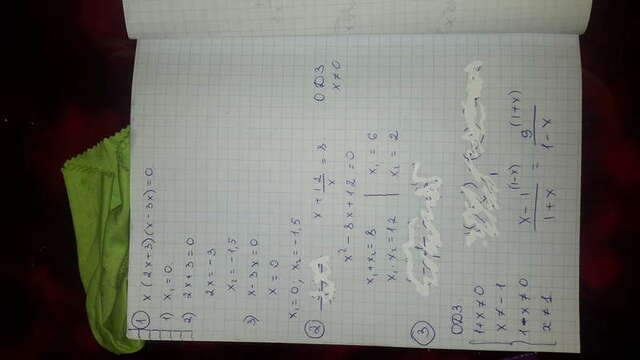 ① x(2x+3)(x-3x)=0
1) x₁=0
2) 2x+3=0
2x=-3
x₂=-1,5
3) x-3x=0
x=0
x₁=0; x₂=-1,5
② x + 12/x = 8 ОДЗ
x≠0
x²-8x+12=0
x₁+x₂=8 | x₁=6
x₁·x₂=12 | x₂=2
③
ОДЗ
{1+x≠0
x≠-1
{1-x≠0
x≠1
x-1^(1-x)/1+x = 9^(1+x)/1-x